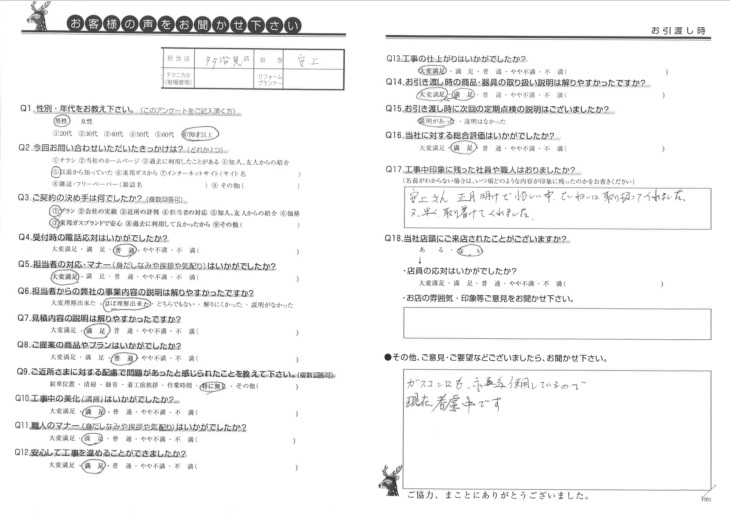 お客様の声をお聞かせ下さい
担当店 多治見店 担当 安上
テクニカル(現場管理) リフォームプランナー
Q1.性別・年代をお教え下さい。(このアンケートをご記入頂く方)
男性 女性
①20代 ②30代 ③40代 ④50代 ⑤60代 ⑥70才以上
Q2.今回お問い合わせいただいたきっかけは?(どれか1つ)
①チラシ ②当社のホームページ ③過去に利用したことがある ④知人、友人からの紹介
⑤以前から知っていた ⑥東邦ガスから ⑦インターネットサイト(サイト名 )
⑧雑誌・フリーペーパー(雑誌名 ) ⑨その他( )
Q3.ご契約の決め手は何でしたか?(複数回答可)
①プラン ②会社の実績 ③近所の評判 ④担当者の対応 ⑤知人、友人からの紹介 ⑥価格
⑦東邦ガスブランドで安心 ⑧過去に利用して良かったから ⑨その他( )
Q4.受付時の電話応対はいかがでしたか?
大変満足・満 足・普 通・やや不満・不 満( )
Q5.担当者の対応・マナー(身だしなみや挨拶や気配り)はいかがでしたか?
大変満足・満 足・普 通・やや不満・不 満( )
Q6.担当者からの弊社の事業内容の説明は解りやすかったですか?
大変理解出来た・ほぼ理解出来た・どちらでもない・解りにくかった・説明がなかった
Q7.見積内容の説明は解りやすかったですか?
大変満足・満 足・普 通・やや不満・不 満( )
Q8.ご提案の商品やプランはいかがでしたか?
大変満足・満 足・普 通・やや不満・不 満( )
Q9.ご近所さまに対する配慮で問題があったと感じられたことを教えて下さい。(複数回答可)
駐車位置・清掃・騒音・着工前挨拶・作業時間・特に無し・その他( )
Q10.工事中の美化(清掃)はいかがでしたか?
大変満足・満 足・普 通・やや不満・不 満( )
Q11.職人のマナー(身だしなみや挨拶や気配り)はいかがでしたか?
大変満足・満 足・普 通・やや不満・不 満( )
Q12.安心して工事を進めることができましたか?
大変満足・満 足・普 通・やや不満・不 満( )
お引渡し時
Q13.工事の仕上がりはいかがでしたか?
大変満足・満 足・普 通・やや不満・不 満( )
Q14.お引き渡し時の商品・器具の取り扱い説明は解りやすかったですか?
大変満足・満 足・普 通・やや不満・不 満( )
Q15.お引き渡し時に次回の定期点検の説明はございましたか?
説明があった・説明はなかった
Q16.当社に対する総合評価はいかがでしたか?
大変満足・満 足・普 通・やや不満・不 満( )
Q17.工事中印象に残った社員や職人はおりましたか?
(名前がわからない場合は、いつ頃どのような内容が印象に残ったのかをお書きください)
安上さん 正月明けで忙しい中、ていねいに取り扱ってくれました、
又、早く取り着けてくれました.
Q18.当社店頭にご来店されたことがございますか?
ある・ない
↓
・店員の応対はいかがでしたか?
大変満足・満 足・普 通・やや不満・不 満( )
・お店の雰囲気・印象等ご意見をお聞かせ下さい。
●その他、ご意見・ご要望などございましたら、お聞かせ下さい。
ガスコンロも、 年使用しているので
現在 考慮中です
ご協力、まことにありがとうございました。